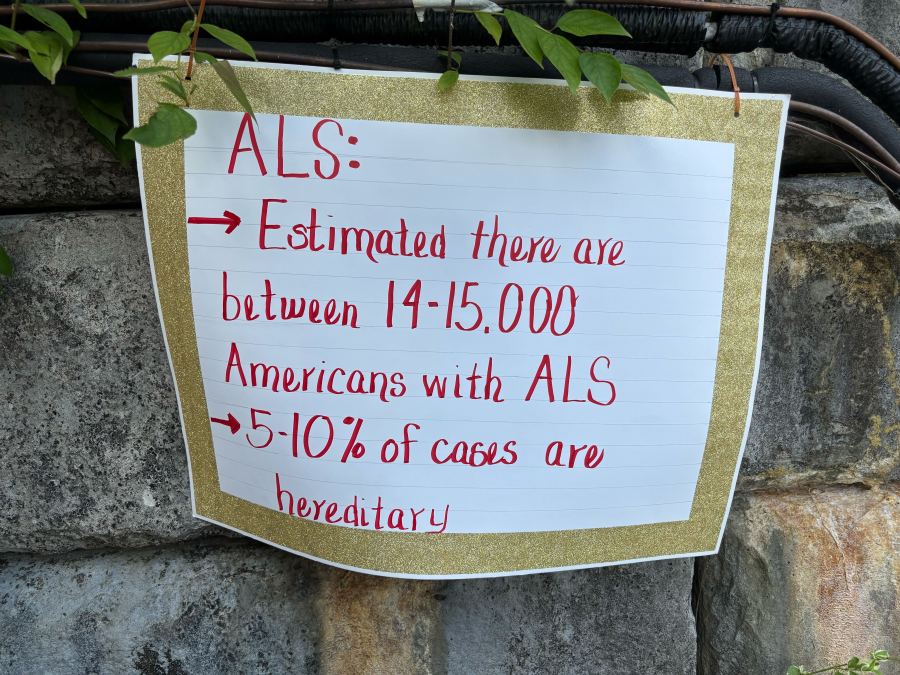 ALS:
→ Estimated there are
between 14-15,000
Americans with ALS
→ 5-10% of cases are
hereditary